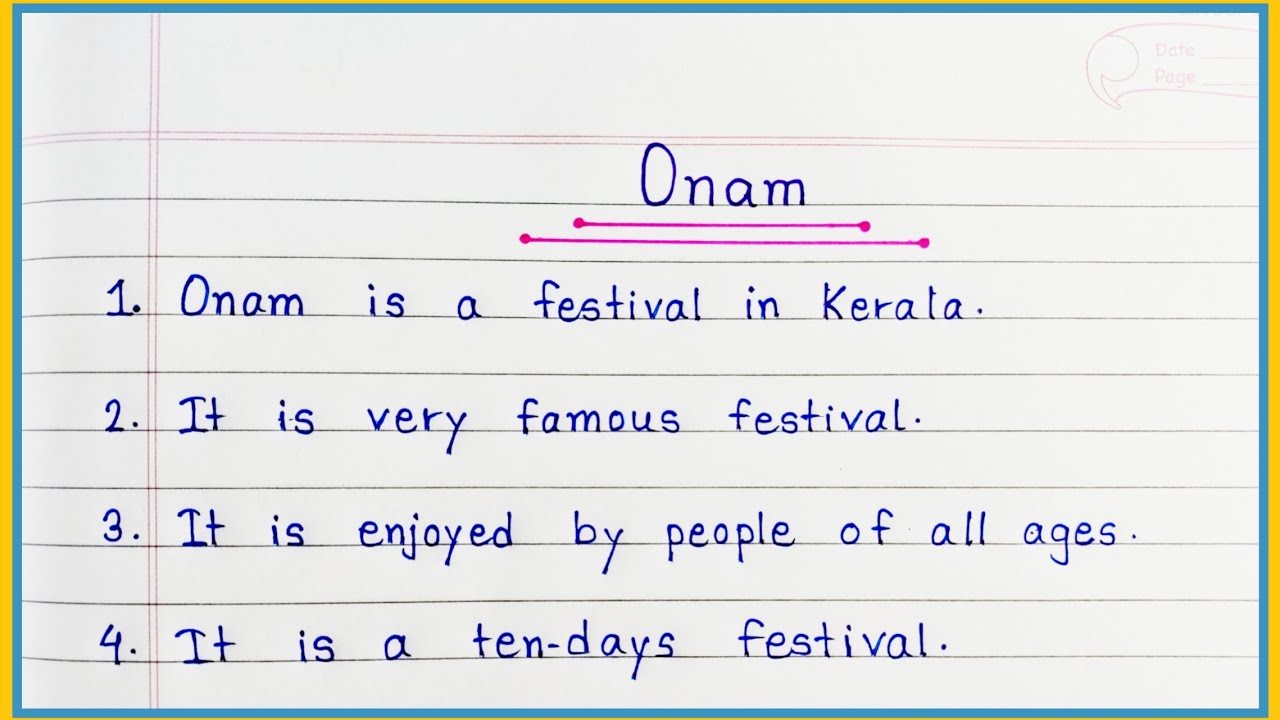 Date
Page
Onam
1. Onam is a festival in Kerala.
2. It is very famous festival.
3. It is enjoyed by people of all ages.
4. It is a ten-days festival.